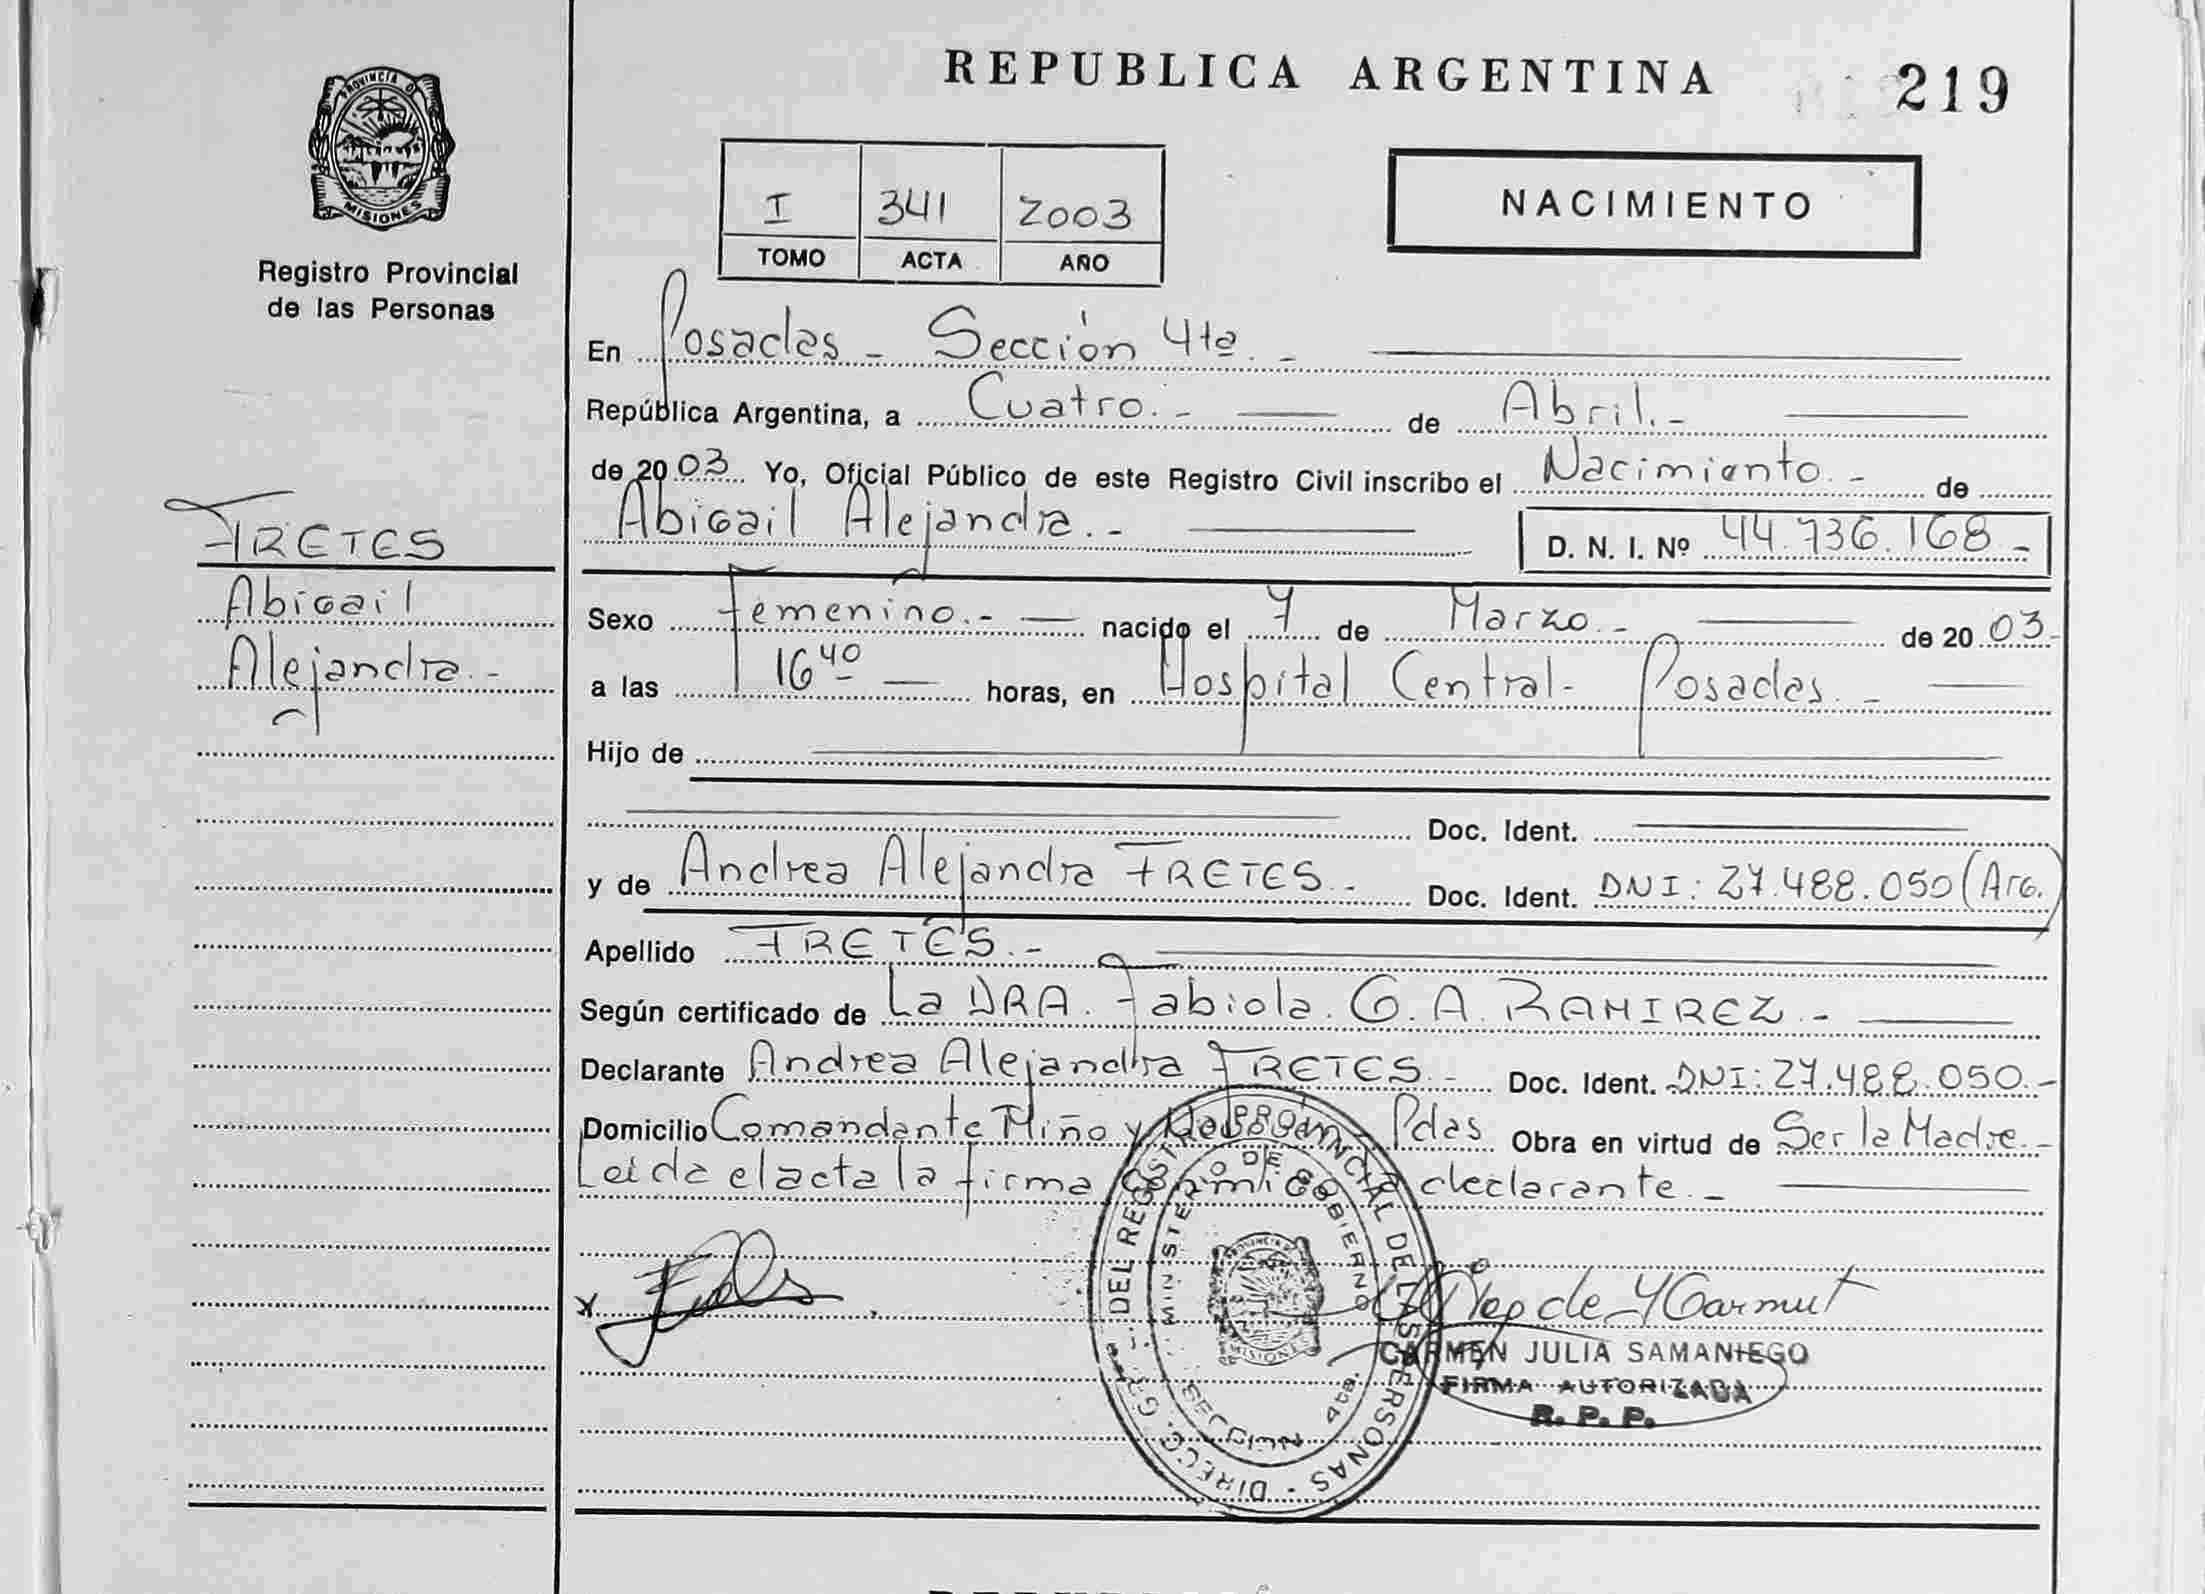 REPUBLICA ARGENTINA
219
PROVINCIA D
MISIONES
Registro Provincial
de las Personas
I 341 2003
TOMO ACTA AÑO
NACIMIENTO
En Posadas - Sección 4ta. -
República Argentina, a Cuatro. - de Abril. -
de 2003. Yo, Oficial Público de este Registro Civil inscribo el Nacimiento. - de
Abigail Alejandra. - D. N. I. Nº 44.736.168 -
FRETES
Abigail
Alejandra. -
Sexo Femenino. - nacido el 7 de Marzo. - de 2003. -
a las 16 40 horas, en Hospital Central - Posadas. -
Hijo de
Doc. Ident.
y de Andrea Alejandra FRETES. - Doc. Ident. DNI: 27.488.050 (Arg.)
Apellido FRETES. -
Según certificado de La DRA. Fabiola. G. A. RAMIREZ. -
Declarante Andrea Alejandra FRETES. - Doc. Ident. DNI: 27.488.050. -
Domicilio Comandante Miño y Pdas Obra en virtud de Ser la Madre. -
Leida el acta la firma conmigo la declarante. -
x
DIRECC. G. DEL REGIST. PROVINCIAL DE LAS PERSONAS -
MINISTERIO DE GOBIERNO
MISIONES
SECCION 4ta.
CARMEN JULIA SAMANIEGO
FIRMA AUTORIZADA
R. P. P.